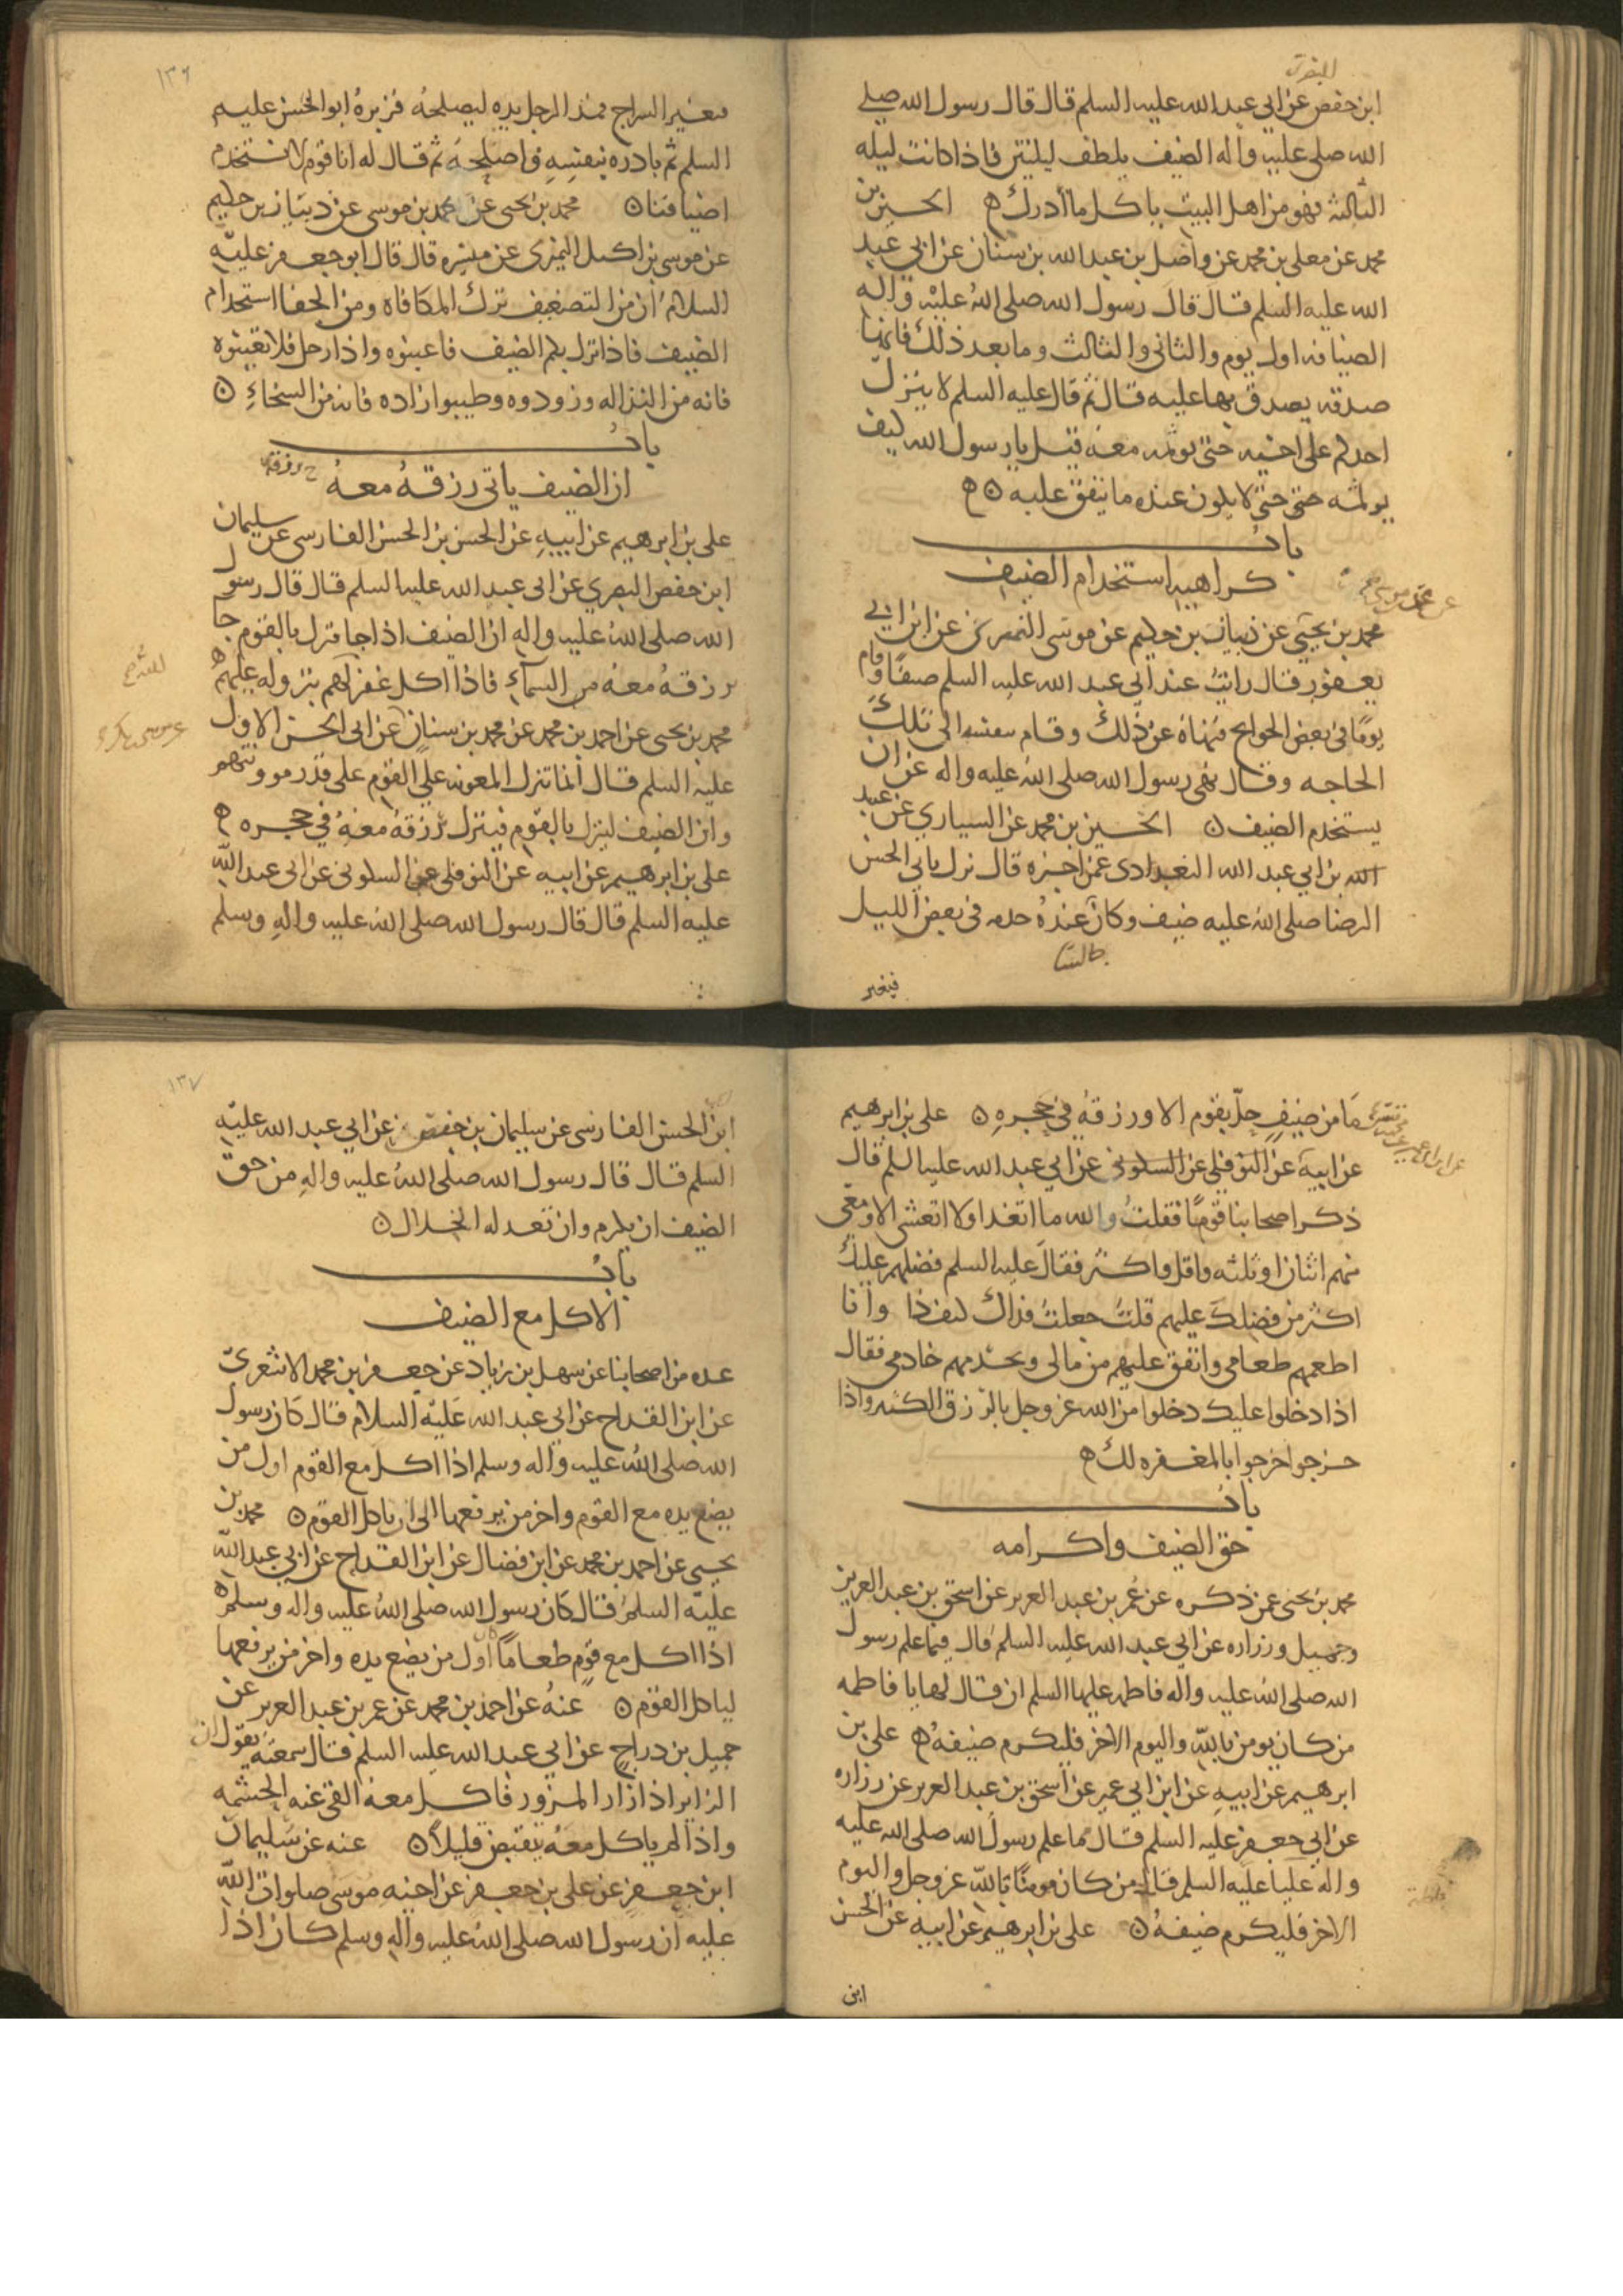 ابن حفص عن ابي عبد الله عليه السلم قال قال رسول الله صلى
الله صلى عليه واله الضيف يلطف ليلتين فاذا كانت ليله
الثالثه فهو من اهل البيت ياكل ما ادرك ه الحسين بن
محمد عن معلى بن محمد عن واصل بن عبد الله بن سنان عن ابي عبد
الله عليه السلم قال قال رسول الله صلى الله عليه واله
الضيافه اول يوم والثاني والثالث وما بعد ذلك فانها
صدقه يصدق بها عليه قال ثم قال عليه السلم لا ينزل
احدكم على اخيه حتى يوثمه معه قيل يا رسول الله كيف
يوثمه حتى حتى لا يكون عنده ما ينفق عليه ه
باب
كراهيه استخدام الضيف
محمد بن يحيى عن ذبيان بن حكيم عن موسى النميري عن ابن ابي
يعفور قال رايت عند ابي عبد الله عليه السلم ضيفا فقام
يوما في بعض الحوايج فنهاه عن ذلك وقام بنفسه الى تلك
الحاجه وقال نهى رسول الله صلى الله عليه واله عن ان
يستخدم الضيف ه الحسين بن محمد عن السياري عن عبيد
الله بن ابي عبد الله البغدادي عمن اخبره قال نزل بابي الحسن
الرضا صلى الله عليه ضيف وكان عنده يحدثه في بعض الليل
جالسا
فتغير
١٣٦
فتغير السراج فمد الرجل يده ليصلحه فزبره ابو الحسن عليه
السلم ثم بادره بنفسه فاصلحه ثم قال له انا قوم لا نستخدم
اضيافنا ه محمد بن يحيى عن محمد بن موسى عن ذبيان بن حكيم
عن موسى بن اكيل النميري عن ميسره قال قال ابو جعفر عليه
السلام ان من التضعيف ترك المكافاه ومن الجفا استخدام
الضيف فاذا نزل بكم الضيف فاعينوه واذا رحل فلا تعينوه
فانه من النذاله وزودوه وطيبوا زاده فانه من السخاء ه
باب
ان الضيف ياتي رزقه معه
علي بن ابرهيم عن ابيه عن الحسن بن الحسن الفارسي عن سليمان
ابن حفص البصري عن ابي عبد الله عليه السلم قال قال رسول
الله صلى الله عليه واله ان الضيف اذا جا فنزل بالقوم جا
برزقه معه من السماء فاذا اكل غفر لهم بنزوله عليهم ه
محمد بن يحيى عن احمد بن محمد عن محمد بن سنان عن ابي الحسن الاول
عليه السلم قال انما تنزل المعونه على القوم على قدر مونتهم
وان الضيف لينزل بالقوم فينزل رزقه معه في حجره ه
علي بن ابرهيم عن ابيه عن النوفلي عن السكوني عن ابي عبد الله
عليه السلم قال قال رسول الله صلى الله عليه واله وسلم
ما من ضيف حل بقوم الا ورزقه في حجره ه علي بن ابرهيم
عن ابيه عن النوفلي عن السكوني عن ابي عبد الله عليه السلم قال
ذكر اصحابنا قوما فقلت والله ما اتغدا ولا اتعشى الا ومعي
منهم اثنان او ثلثه واقل واكثر فقال عليه السلم فضلهم عليك
اكثر من فضلك عليهم قلت جعلت فداك كيف ذا وانا
اطعمهم طعامي وانفق عليهم من مالي ويخدمهم خادمي فقال
اذا دخلوا عليك دخلوا من الله عز وجل بالرزق الكثير واذا
خرجوا خرجوا بالمغفره لك ه
باب
حق الضيف واكرامه
محمد بن يحيى عمن ذكره عن عمر بن عبد العزيز عن اسحق بن عبد العزيز
وجميل وزراره عن ابي عبد الله عليه السلم قال فيما علم رسول
الله صلى الله عليه واله فاطمه عليها السلم ان قال لها يا فاطمه
من كان يومن بالله واليوم الاخر فليكرم ضيفه ه علي بن
ابرهيم عن ابيه عن ابن ابي عمير عن اسحق بن عبد العزيز عن زراره
عن ابي جعفر عليه السلم قال مما علم رسول الله صلى الله عليه
واله عليا عليه السلم قال من كان مومنا بالله عز وجل واليوم
الاخر فليكرم ضيفه ه علي بن ابرهيم عن ابيه عن الحسن
ابن
١٣٧
ابن الحسن الفارسي عن سليمان بن حفص عن ابي عبد الله عليه
السلم قال قال رسول الله صلى الله عليه واله من حق
الضيف ان يكرم وان تعد له الخلال ه
باب
الاكل مع الضيف
عده من اصحابنا عن سهل بن زياد عن جعفر بن محمد الاشعري
عن ابن القداح عن ابي عبد الله عليه السلام قال كان رسول
الله صلى الله عليه واله وسلم اذا اكل مع القوم اول من
يضع يده مع القوم واخر من يرفعها الى ان ياكل القوم ه محمد بن
يحيى عن احمد بن محمد عن ابن فضال عن ابن القداح عن ابي عبد الله
عليه السلم قال كان رسول الله صلى الله عليه واله وسلم
اذا اكل مع قوم طعاما كان اول من يضع يده واخر من يرفعها
لياكل القوم ه عنه عن احمد بن محمد عن عمر بن عبد العزيز عن
جميل بن دراج عن ابي عبد الله عليه السلم قال سمعته يقول ان
الزاير اذا زار المزور فاكل معه القى عنه الحشمه
واذا لم ياكل معه ينقبض قليلا ه عنه عن سليمان
ابن جعفر عن علي بن جعفر عن اخيه موسى صلوات الله
عليه ان رسول الله صلى الله عليه واله وسلم كان اذا